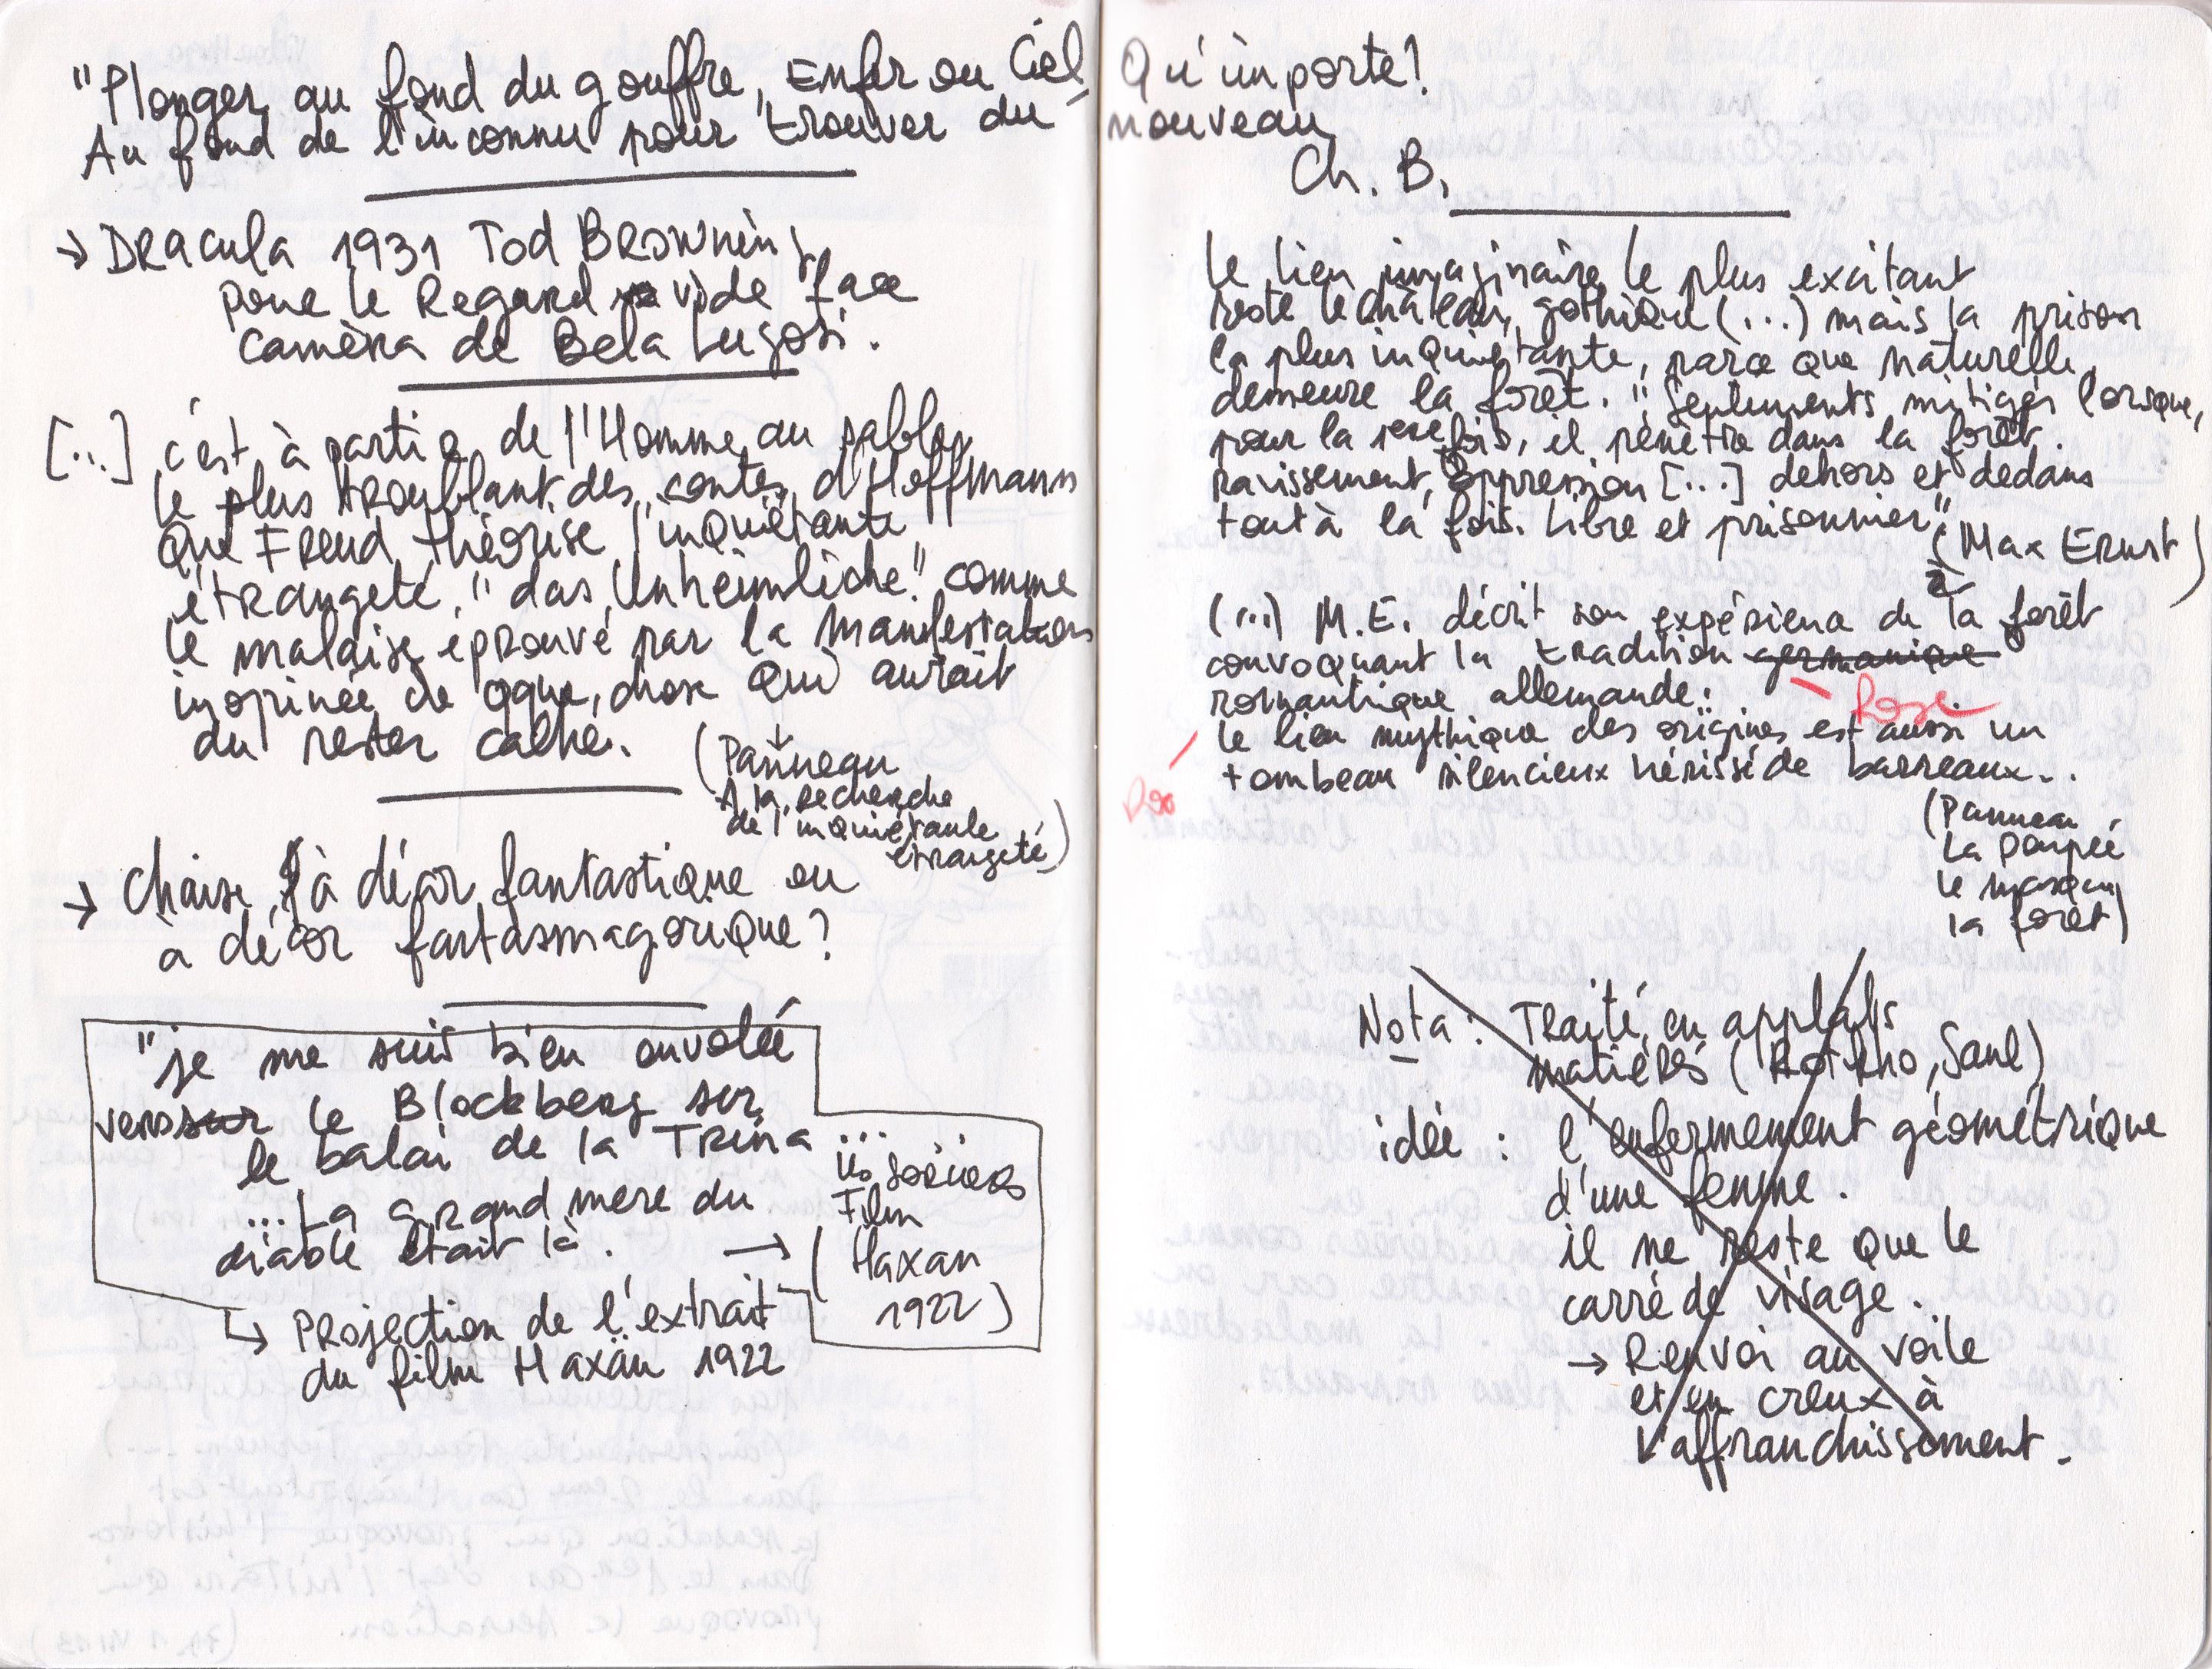 "Plonger au fond du gouffre, Enfer ou Ciel Qu'importe!
Au fond de l'inconnu pour trouver du nouveau
Ch. B.
→ DRACULA 1931 Tod BROWNING
pour le Regard vide face
caméra de Bela Lugosi.
[...] c'est à partir de l'Homme au sable,
le plus troublant des contes d'Hoffmann
que FREUD théorise l'inquiétante
étrangeté, "das Unheimliche" comme
le malaise éprouvé par la manifestation
inopinée de qque chose qui aurait
du rester caché.
(Panneau
A la recherche
de l'inquiétante
étrangeté)
→ Chaise à décor fantastique ou
à décor fantasmagorique?
"je me suis bien envolée
vers le Blockberg sur
le balai de la Trina ...
...La grand mere du
diable était là. →
les sorcières
Film
(Haxan
1922)
↳ Projection de l'extrait
du film Haxän 1922
Le lieu imaginaire le plus excitant
reste le château gothique (...) mais la prison
la plus inquiétante, parce que naturelle,
demeure la forêt. "Sentiments mitigés lorsque,
pour la 1ere fois, il pénètre dans la forêt.
ravissement, oppression [...] dehors et dedans
tout à la fois. Libre et prisonnier"
(Max Ernst)
(...) M.E. décrit son expérience de la forêt
convoquant la tradition germanique
romantique allemande:
le lieu mythique des origines est aussi un
tombeau silencieux hérissé de barreaux...
(Panneau
La Poupée
le masque
la forêt)
Nota: Traité en applats
matières (Rothko, Saul)
idée: l'enfermement géométrique
d'une femme.
il ne reste que le
carré de visage.
→ Renvoi au voile
et en creux à
l'affranchissement.